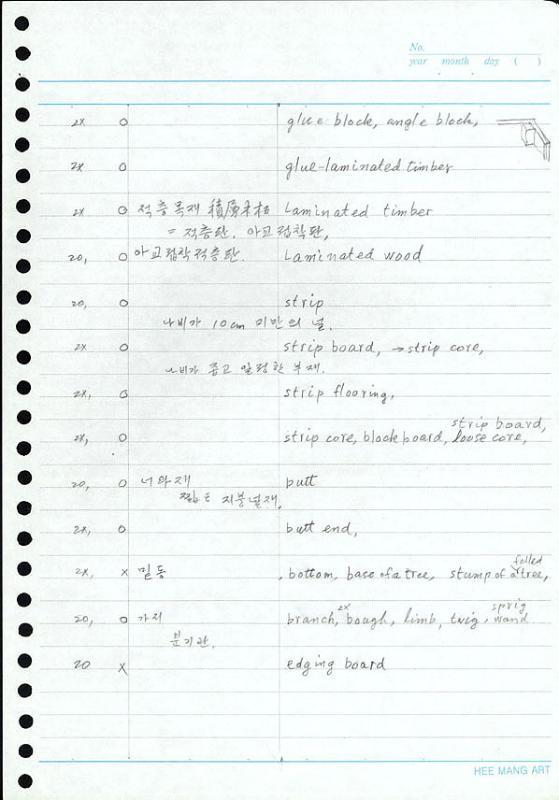 No.
year month day ( )
2x o glue block, angle block,
2x o glue-laminated timber
2x o 적층목재 積層木材 Laminated timber
= 적층판. 아교접착판,
20, o 아교접착적층판. Laminated wood
20, o strip
나비가 10cm 미만의 널.
2x o strip board, → strip core,
나비가 좁고 일정한 부재.
2x, o strip flooring,
strip board,
2x, o strip core, block board, loose core,
20, o 너와재 butt
지붕널재,
2x, o butt end,
felled
2x, x 밑동 , bottom, base of a tree, stump of a tree,
2x sprig
20, o 가지 branch, bough, limb, twig, wand
분기관,
20 x edging board
HEE MANG ART